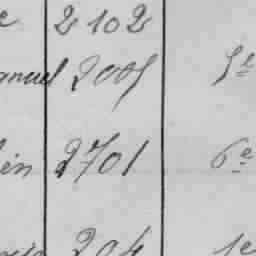 e 2102
anuel 2005 5e
ien 2701 6e
204 1e